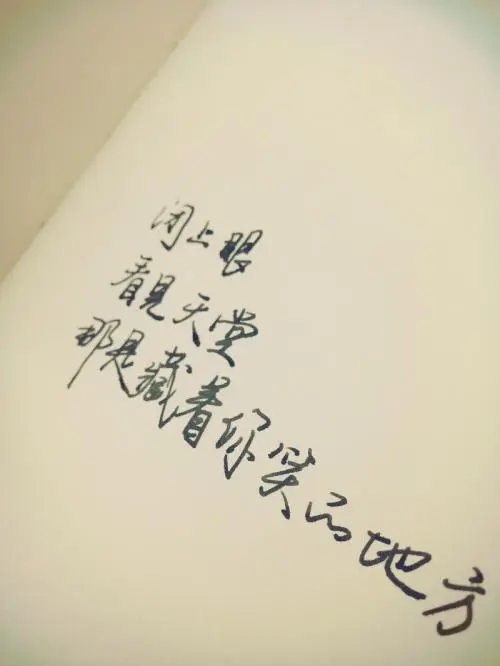 闭上眼
看見天堂
那是藏着你笑的地方